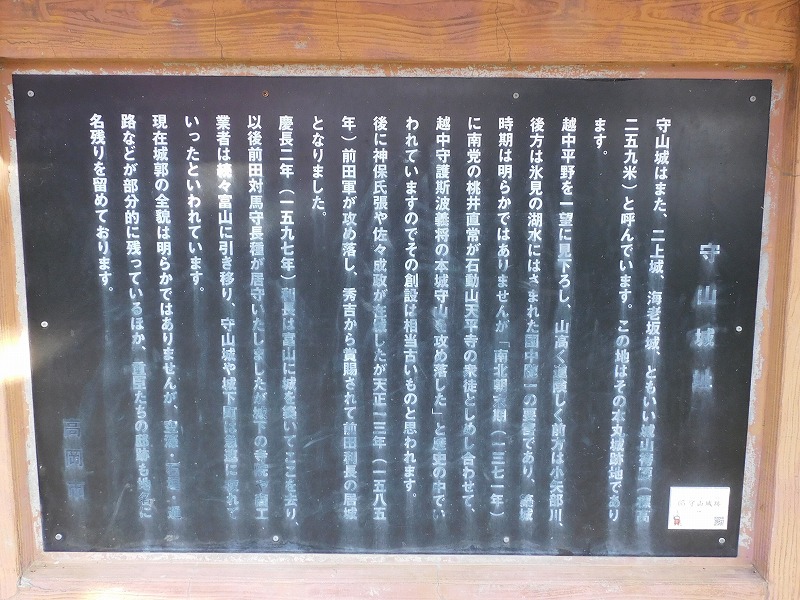 守山城址
守山城はまた、二上城、海老坂城、ともいい城山（標高
二五九米）と呼んでいます。この地はその本丸場跡地であり
ます。
越中平野を一望に見下ろし、山高く道険しく前方は小矢部川、
後方は氷見の湖水にはさまれた国中の要害であり、築城
時期は明らかではありませんが「南北朝末期（一三七一年）
に南党の桃井直常が石動山天平寺の衆徒としめし合わせて、
越中守護斯波義将の本城守山を攻め落した」と歴史の中でい
われていますのでその創設は相当古いものと思われます。
後に神保氏張や佐々成政が在城したが天正十三年（一五八五
年）前田軍が攻め落し、秀吉から賞賜されて前田利長の居城
となりました。
慶長二年（一五九七年）利長は富山に城を築いてここを去り、
以後前田対馬守長種が居守いたしましたが城下の寺院や商工
業者は続々富山に引き移り、守山城や城下町は急速に寂れて
いったといわれています。
現在城郭の全貌は明らかではありませんが、空濠・・道
路などが部分的に残っているほか、重臣たちの邸跡も場所に
名残りを留めております。
高岡市
守山城跡